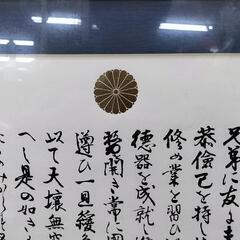 兄弟に友に
恭儉己を持し
修め業を習ひ
德器を成就し
開き常に國
遵ひ一旦緩急
以て天壤無窮
へし是の如き